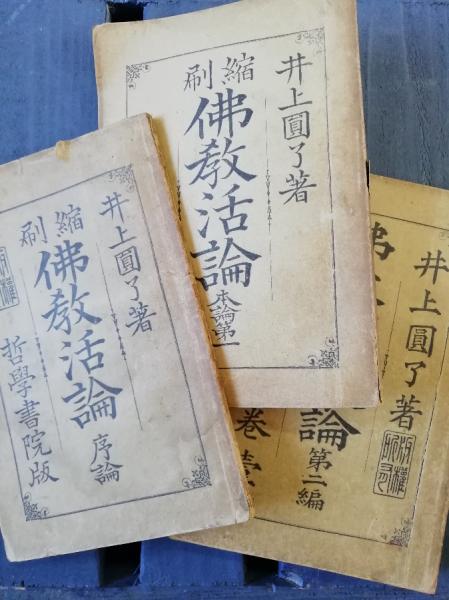 井上圓了著
縮刷
佛教活論 本論第一
井上圓了著
縮刷
佛教活論 序論
哲學書院版
版權
井上圓了著
版權所有
論 第二編
卷壹